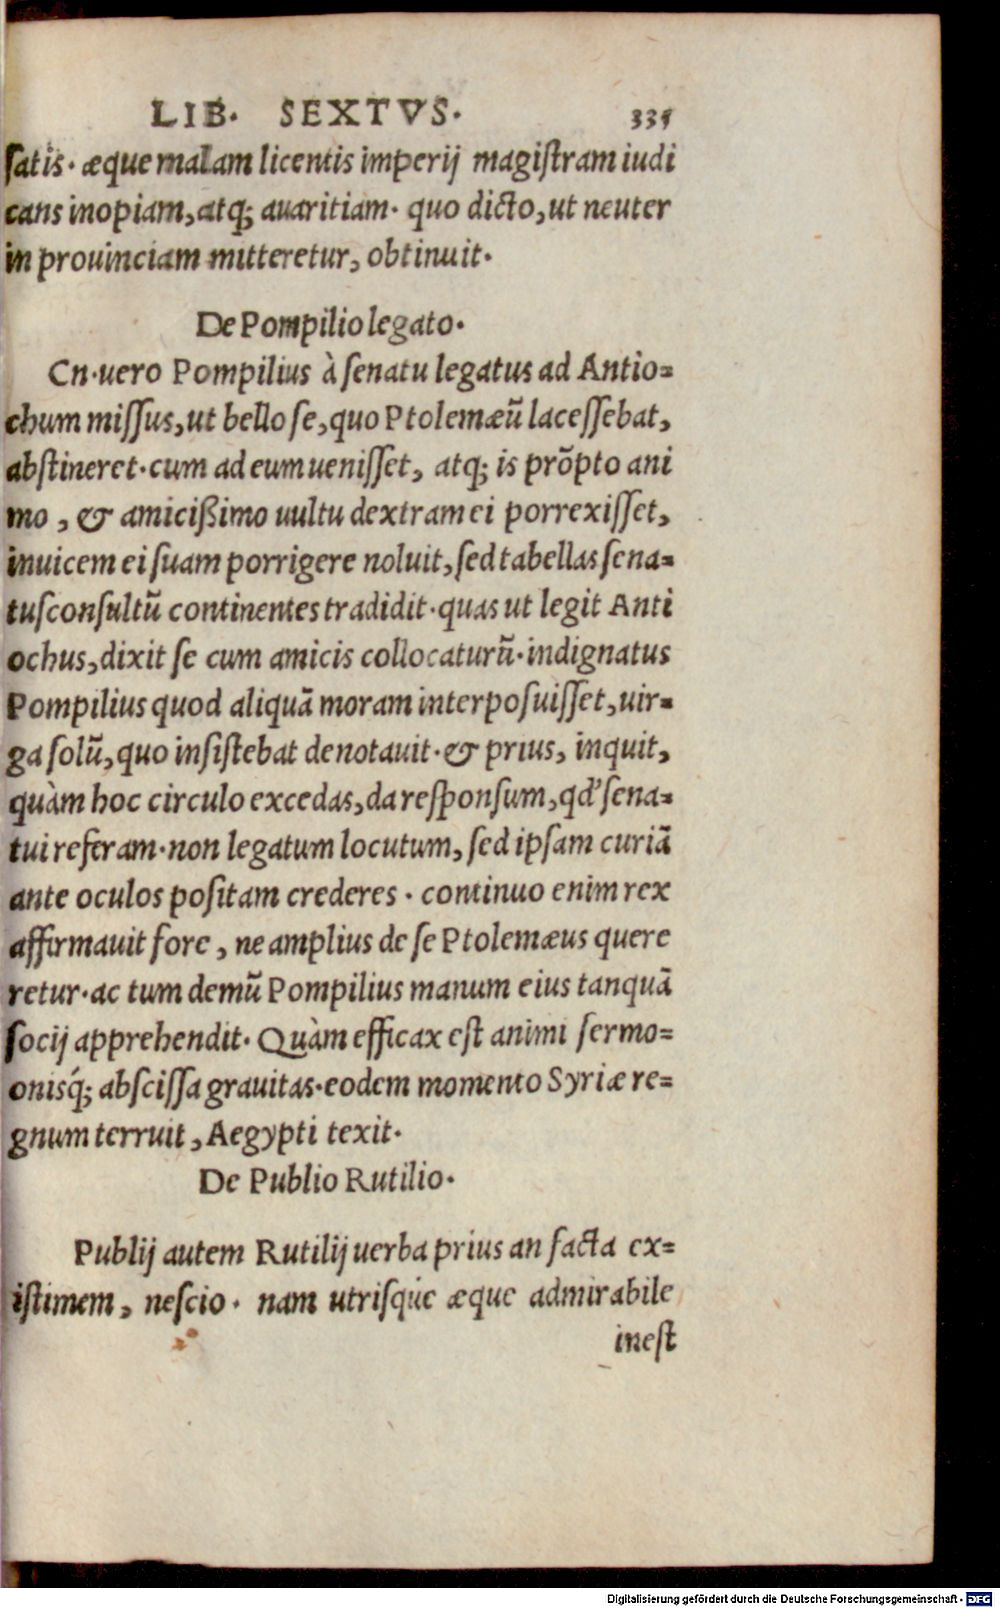 LIB. SEXTVS. 335
ſatis. æque malam licentis imperij magiſtram iudi
cans inopiam, atq; auaritiam. quo dicto, ut neuter
in prouinciam mitteretur, obtinuit.
De Pompilio legato.
Cn. uero Pompilius à ſenatu legatus ad Antio=
chum miſſus, ut bello ſe, quo Ptolemæū laceſſebat,
abſtineret. cum ad eum ueniſſet, atq; is prōpto ani
mo, & amicißimo uultu dextram ei porrexiſſet,
inuicem ei ſuam porrigere noluit, ſed tabellas ſena=
tuſconſultū continentes tradidit. quas ut legit Anti
ochus, dixit ſe cum amicis collocaturū. indignatus
Pompilius quod aliquā moram interpoſuiſſet, uir=
ga ſolū, quo inſiſtebat denotauit. & prius, inquit,
quàm hoc circulo excedas, da reſponſum, qd' ſena=
tui referam. non legatum locutum, ſed ipſam curiā
ante oculos poſitam crederes. continuo enim rex
affirmauit fore, ne amplius de ſe Ptolemæus quere
retur. ac tum demū Pompilius manum eius tanquā
ſocij apprehendit. Quàm efficax eſt animi ſermo=
onisq́; abſciſſa grauitas. eodem momento Syriæ re=
gnum terruit, Aegypti texit.
De Publio Rutilio.
Publij autem Rutilij uerba prius an facta ex=
iſtimem, neſcio. nam utriſque æque admirabile
ineſt
Digitalisierung gefördert durch die Deutsche Forschungsgemeinschaft - DFG